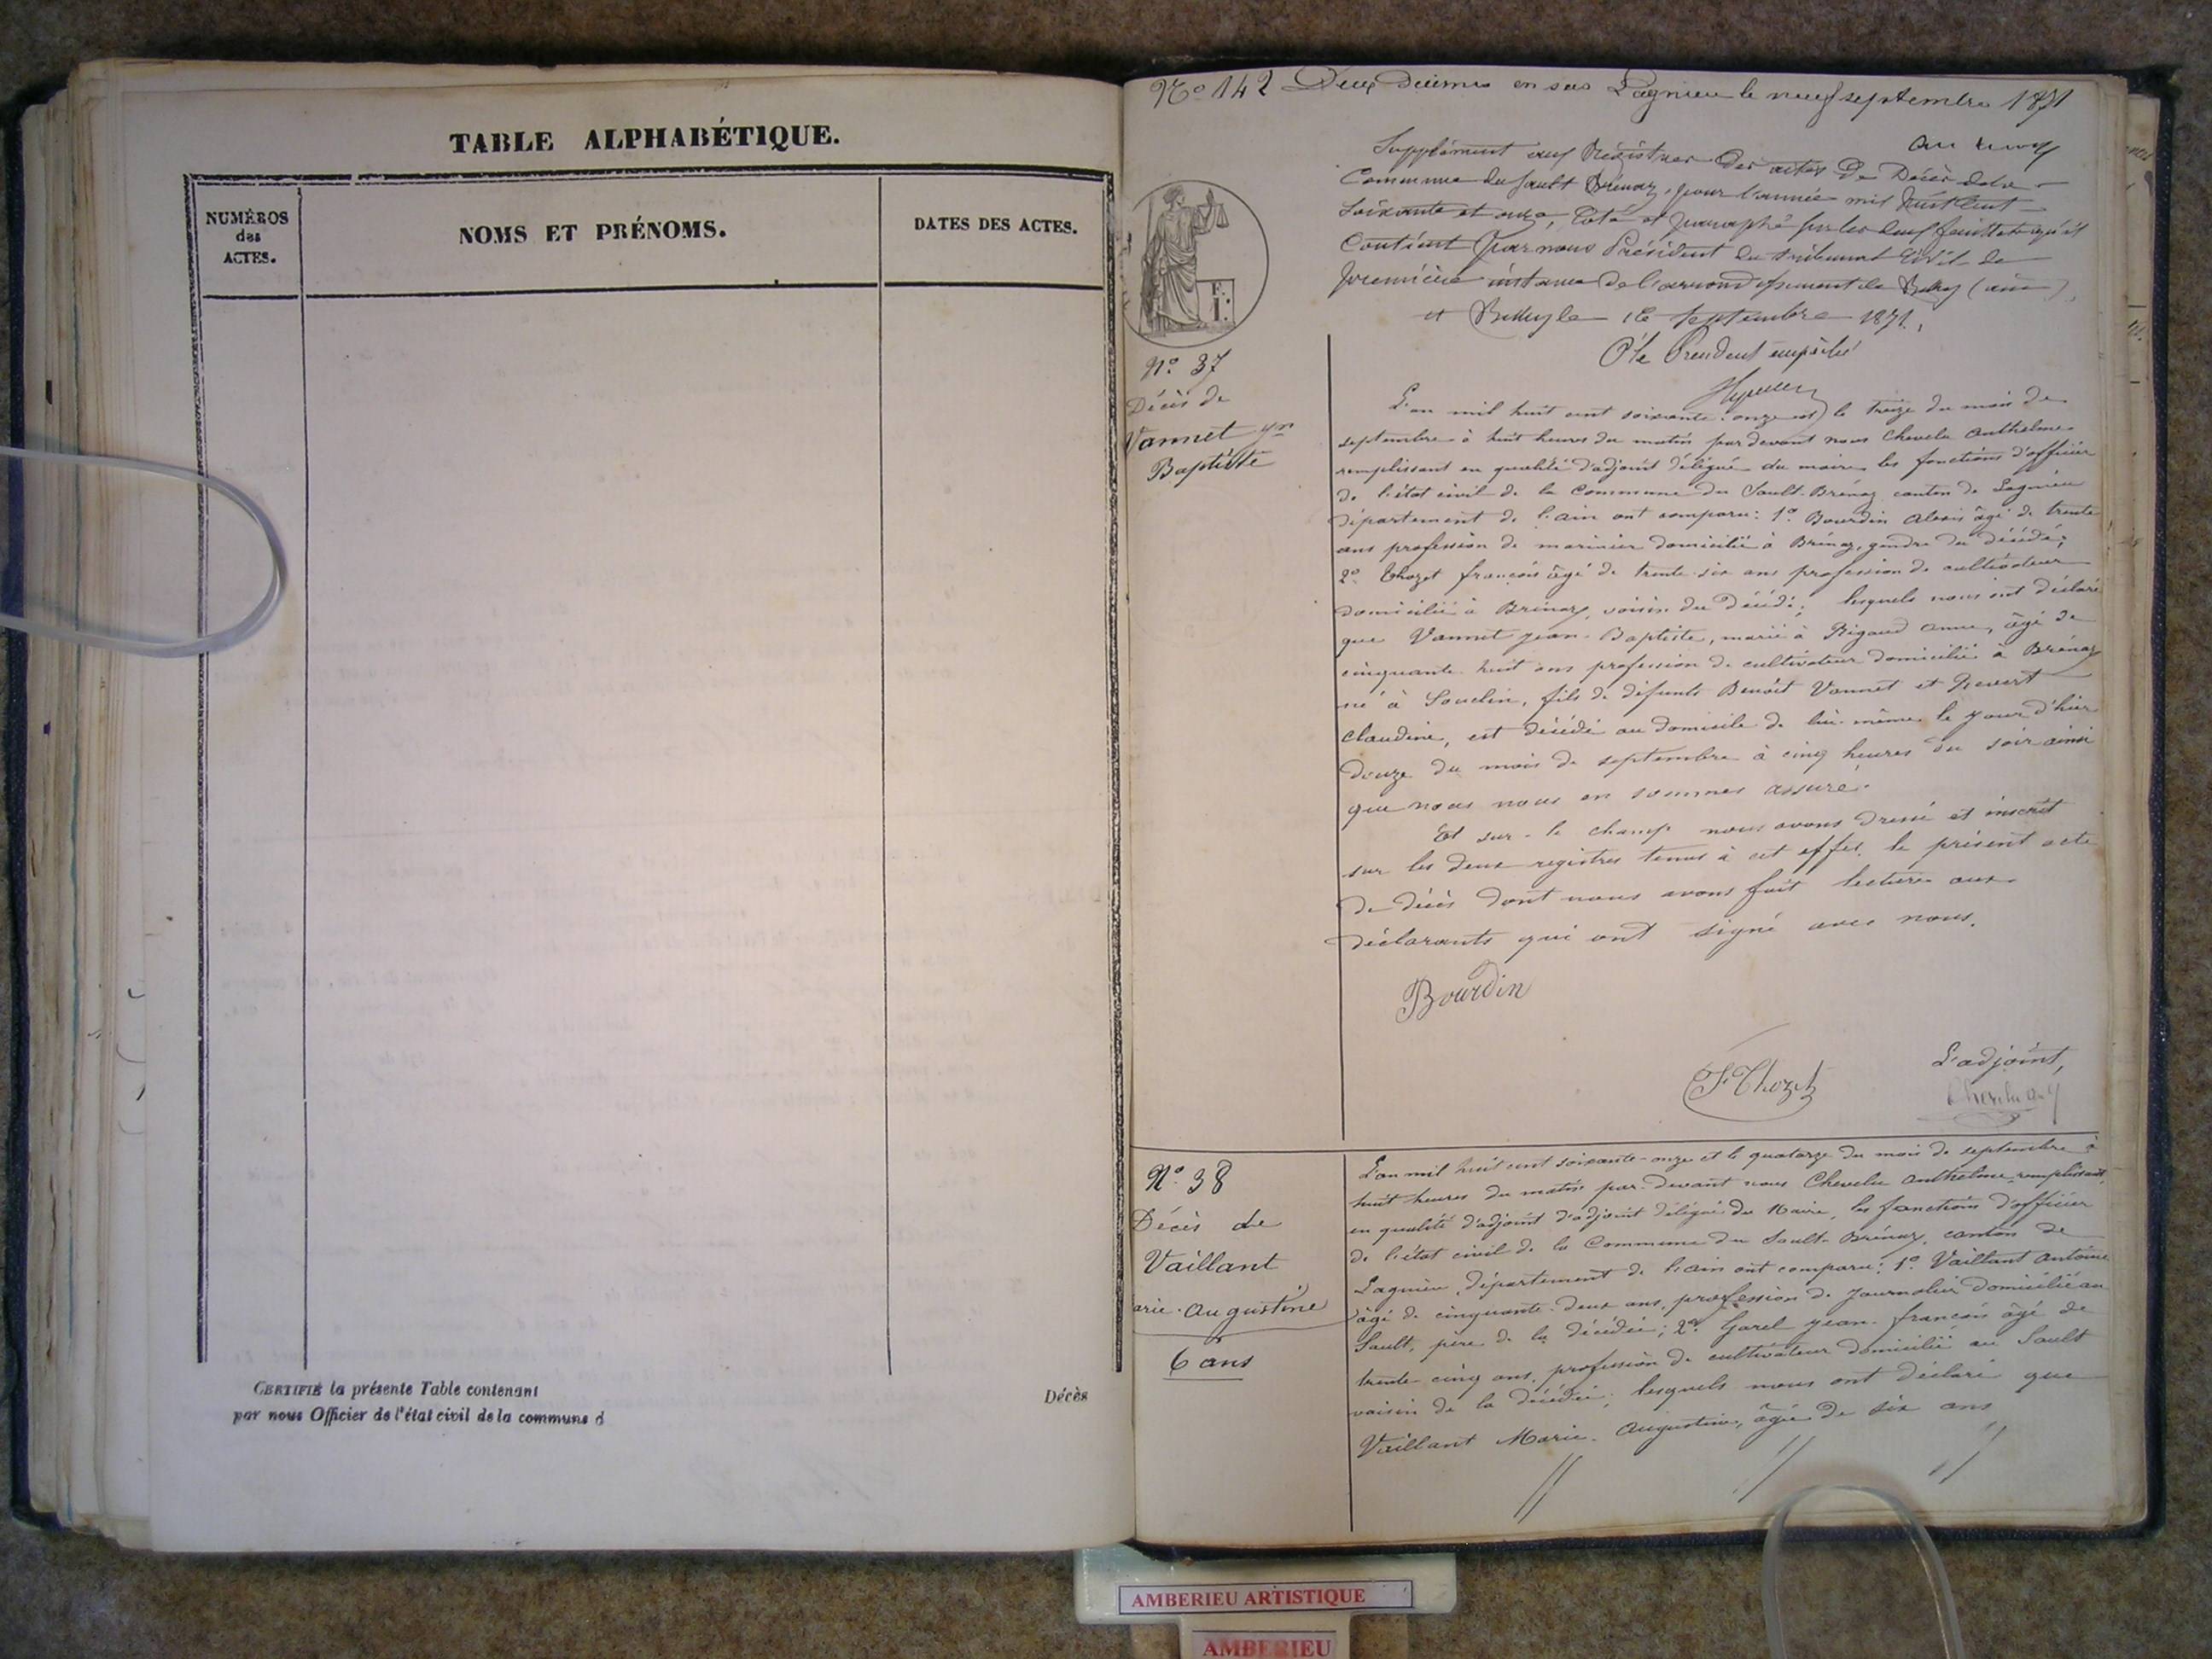 TABLE ALPHABÉTIQUE.
NUMÉROS
des
ACTES.
NOMS ET PRÉNOMS.
DATES DES ACTES.
CERTIFIÉ la présente Table contenant
Décès
par nous Officier de l'état civil de la commune d
No 142 Deux décimes en sus Lagnieu le neuf septembre 1871
Supplément aux Régistres des actes de Décès de la
Commune du Sault Brénaz, pour l'année mil huit cent
soixante et onze, Coté et paraphé sur les deux feuillets qu'il
Contient par nous Président du tribunal Civil de
première instance de l'arrondissement de Belley (ain),
à Belley le 16 septembre 1871.
Ple Président empêché
F.
1.
No 37
Décès de
Vannet jn
Baptiste
L'an mil huit cent soixante-onze et le treize du mois de
septembre à huit heures du matin par devant nous Chevelu Anthelme
remplissant en qualité d'adjoint délégué du maire les fonctions d'officier
de l'état civil de la Commune du Sault-Brénaz canton de Lagnieu
département de l'ain ont comparu: 1o Bourdin Alexis âgé de trente
ans profession de marinier domicilié à Brénaz, gendre du décédé;
2o Thozet françois âgé de trente-six ans profession de cultivateur
domicilié à Brénaz, voisin du décédé; lesquels nous ont déclaré
que Vannet jean-Baptiste, marié à Rigaud anne, âgé de
cinquante-huit ans profession de cultivateur domicilié à Brénaz
né à Souclin, fils de défunts Benoît Vannet et
Claudine, est décédé au domicile de lui-même le jour d'hier
douze du mois de septembre à cinq heures du soir ainsi
que nous nous en sommes assuré.
Et sur-le champ nous avons dressé et inscrit
sur les deux registres tenus à cet effet, le présent acte
de décès dont nous avons fait lecture aux
déclarants qui ont signé avec nous.
Bourdin
F Thozet
L'adjoint,
Chevelu
No 38
Décès de
Vaillant
arie-Augustine
6 ans
L'an mil huit cent soixante-onze et le quatorze du mois de septembre à
huit heures du matin par-devant nous Chevelu Anthelme remplissant
en qualité d'adjoint d'adjoint délégué du Maire, les fonctions d'officier
de l'état civil de la Commune du Sault-Brénaz, canton de
Lagnieu, département de l'ain ont comparu: 1o Vaillant Antoine
âgé de cinquante-deux ans, profession de journalier domicilié au
Sault, père de la décédée; 2o Garel jean-françois âgé de
trente cinq ans, profession de cultivateur domicilié au Sault
voisin de la décédée; lesquels nous ont déclaré que
Vaillant Marie-Augustine, âgée de six ans
AMBERIEU ARTISTIQUE
AMBERIEU